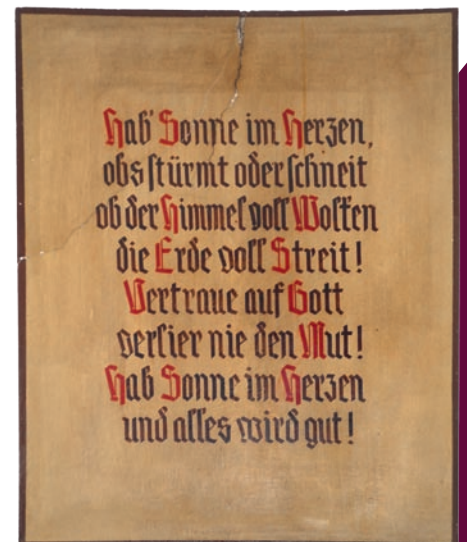 Hab' Sonne im Herzen,
obs stürmt oder schneit
ob der Himmel voll Wolken
die Erde voll Streit!
Vertraue auf Gott
verlier nie den Mut!
Hab Sonne im Herzen
und alles wird gut!